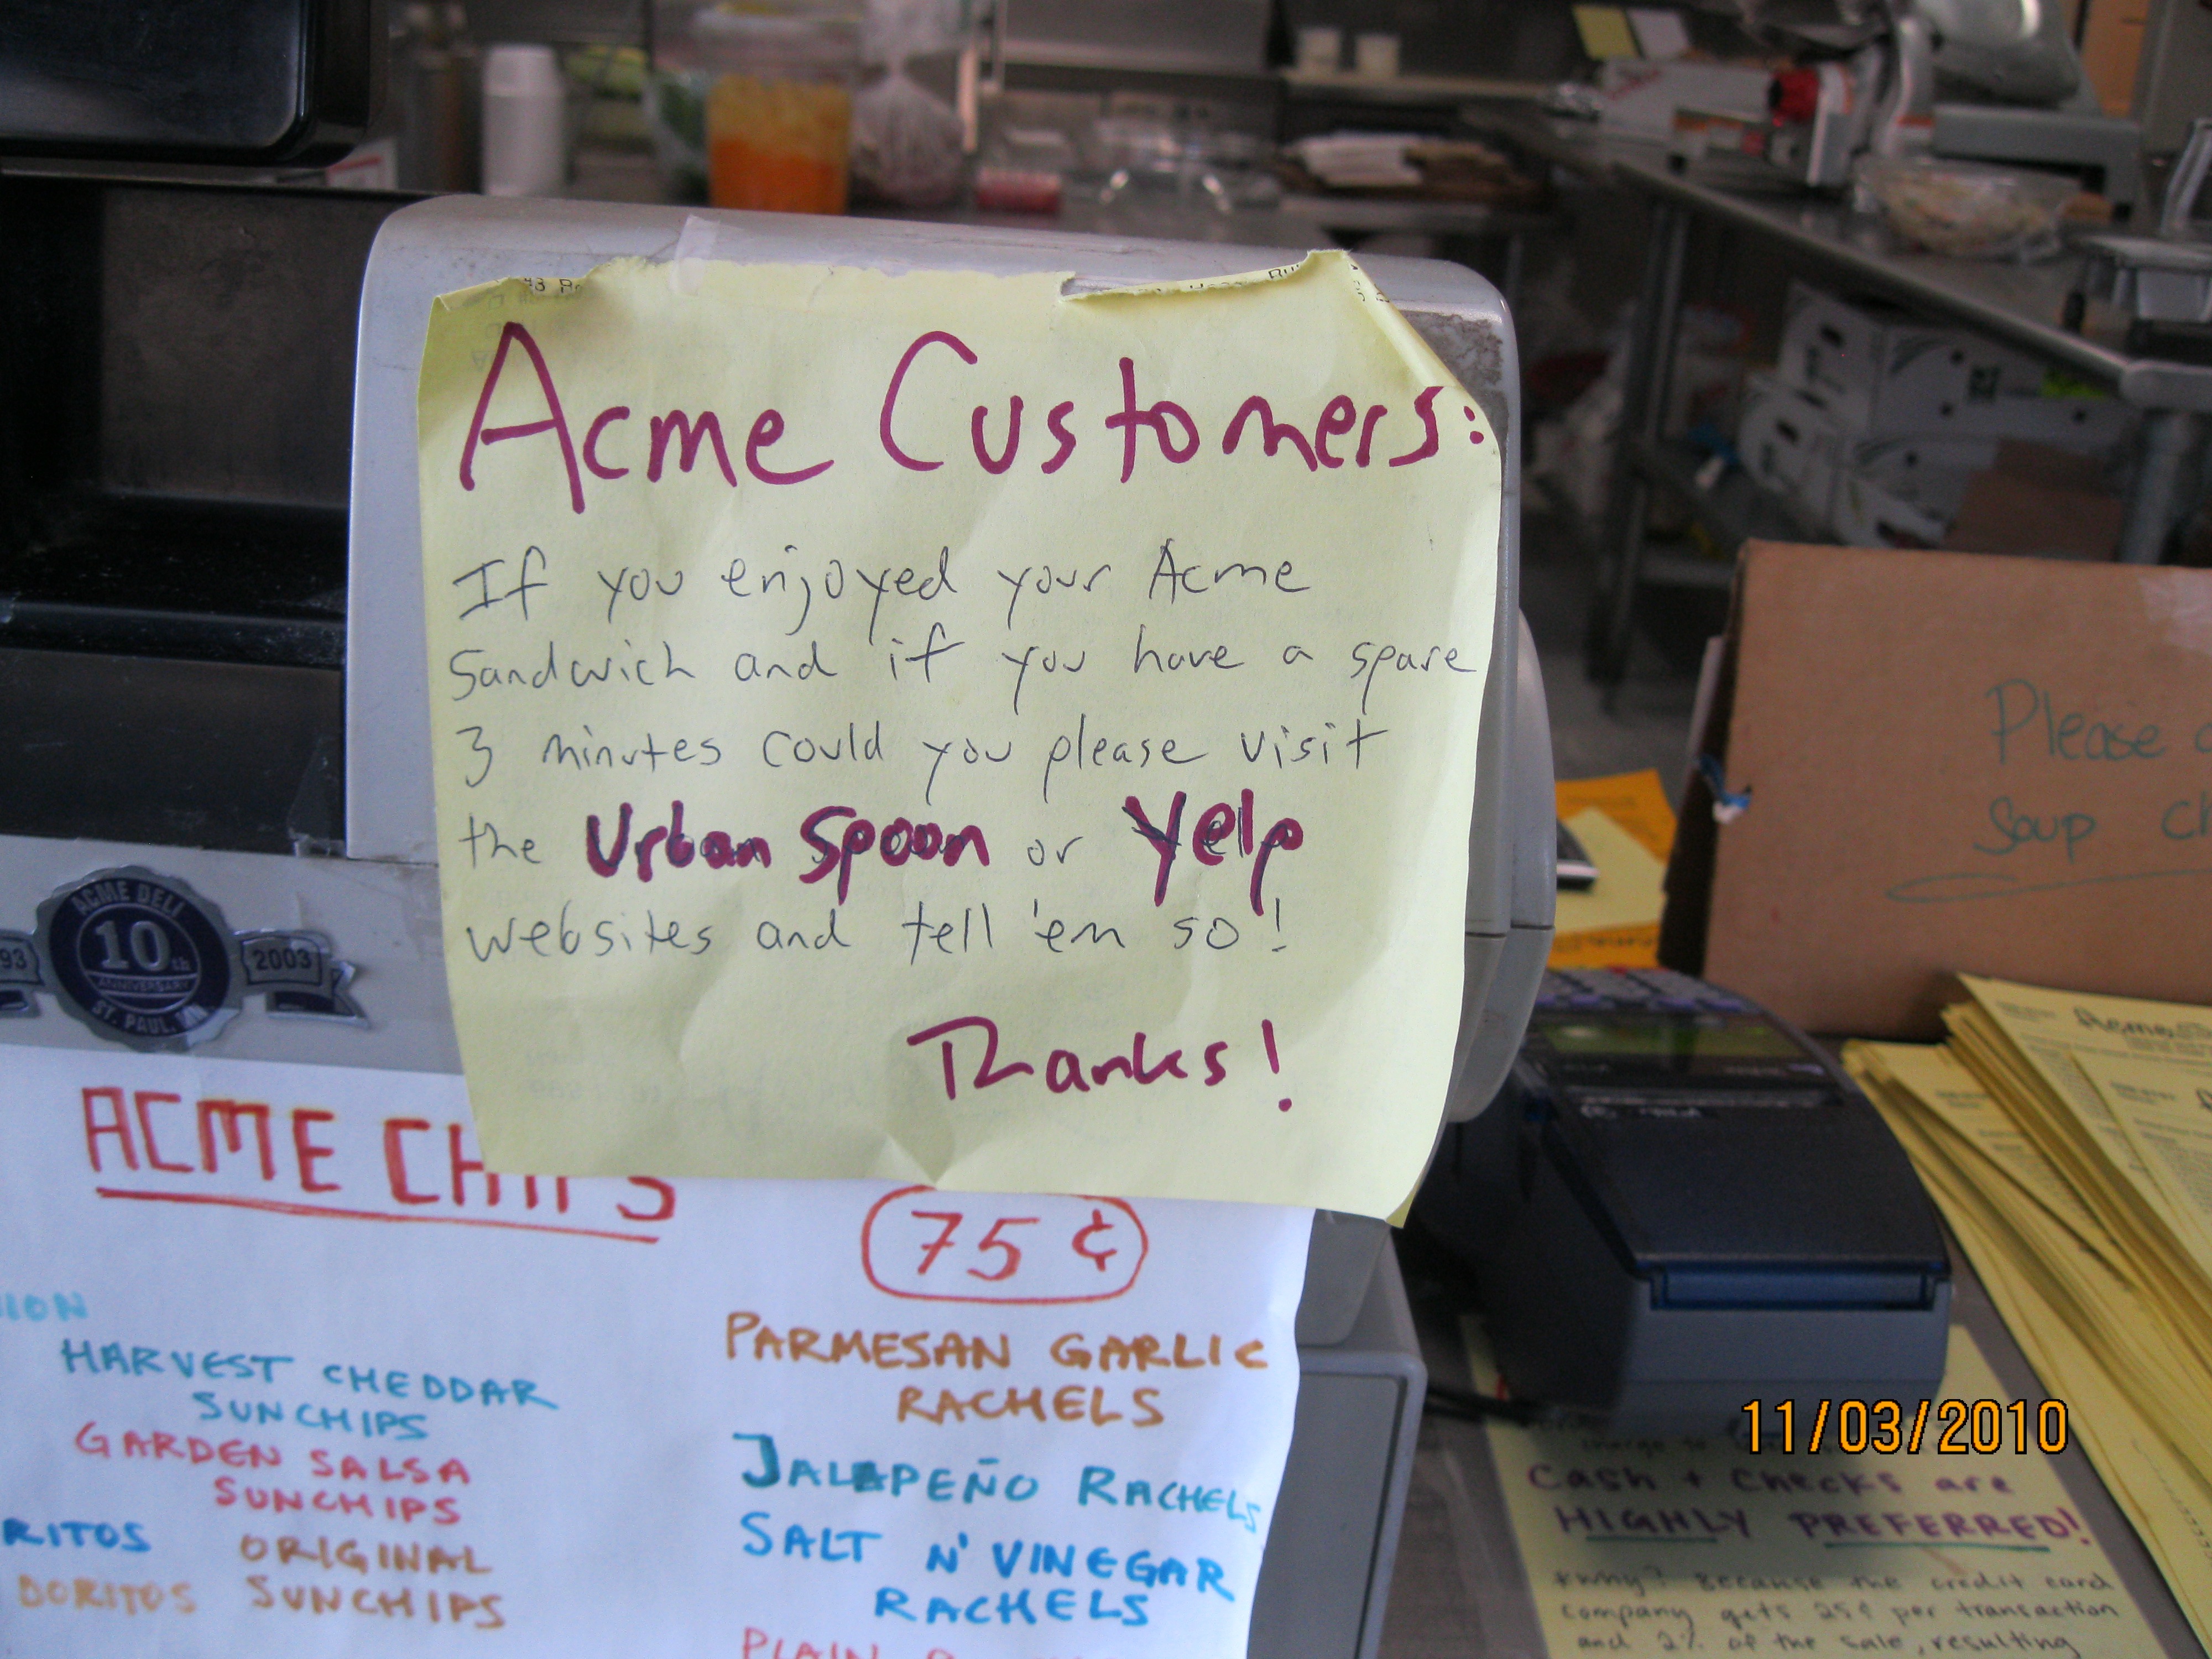 Acme Customers:
If you enjoyed your Acme
Sandwich and if you have a spare
3 minutes could you please visit
the Urban Spoon or Yelp
websites and tell 'em so!
Thanks!
ACME DELI
10th
ANNIVERSARY
93 2003
ST. PAUL, MN
ACME CHIPS
75¢
HARVEST CHEDDAR
SUNCHIPS
GARDEN SALSA
SUNCHIPS
RITOS ORIGINAL
DORITOS SUNCHIPS
PARMESAN GARLIC
RACHELS
JALAPEÑO RACHELS
SALT N' VINEGAR
RACHELS
PLAIN
Please
Soup
Acme
11/03/2010
Cash + Checks are
HIGHLY PREFERRED!
*Why? Because the credit card
company gets 25¢ per transaction
and 2% of the sale, resulting